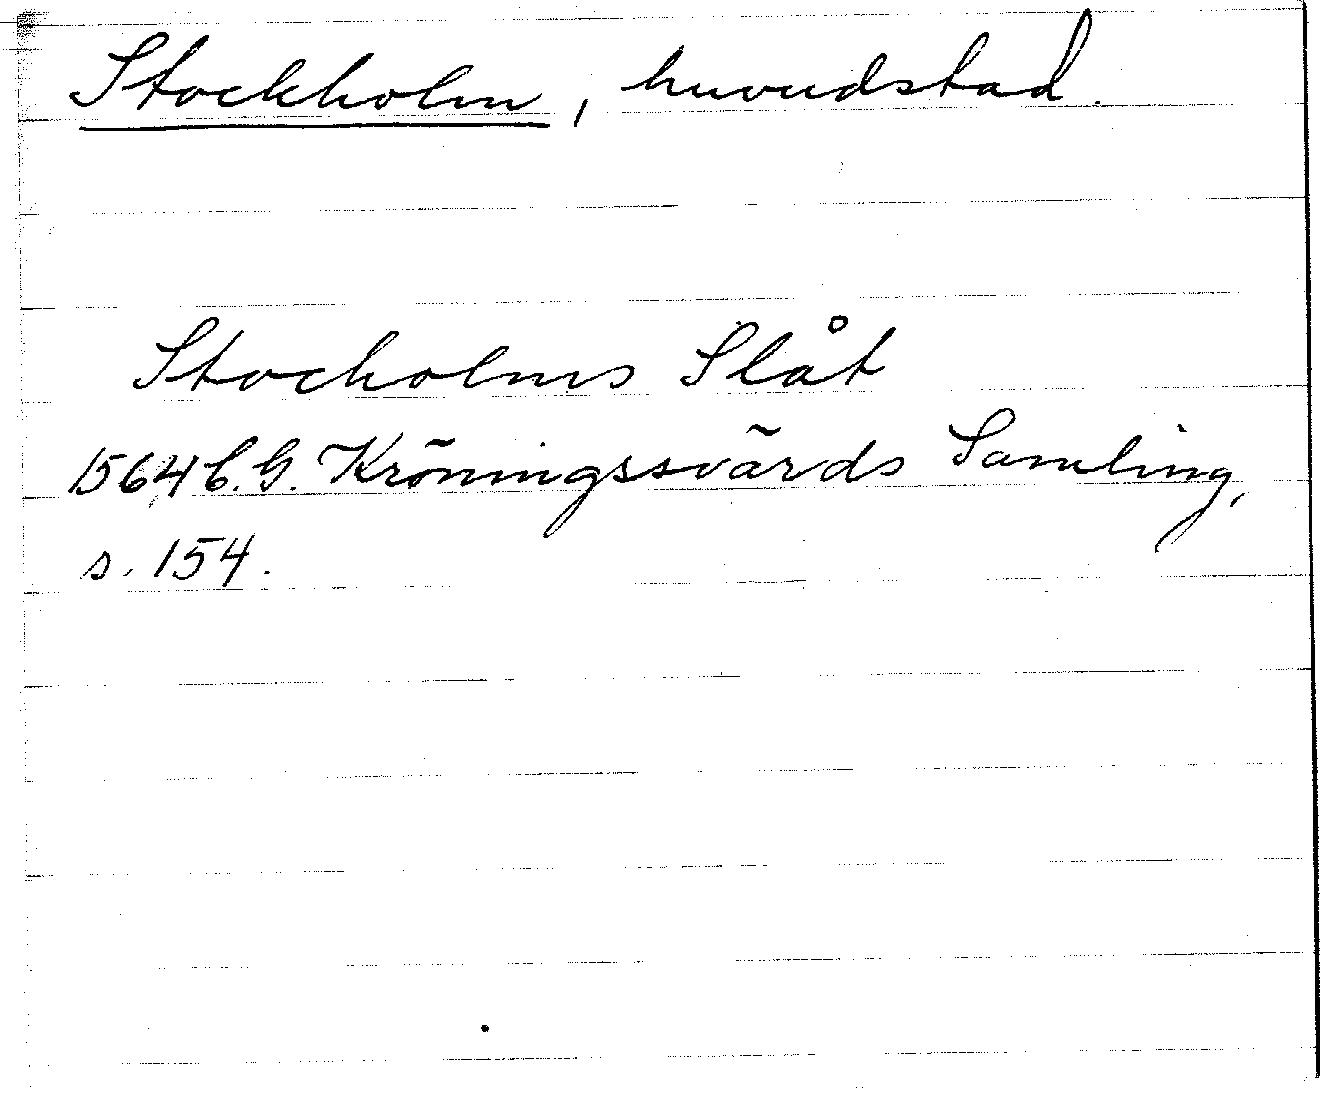 Stockholm, huvudstad.
Stocholms Slåt
1564 C.G. Kröningssvärds Samling,
s. 154.